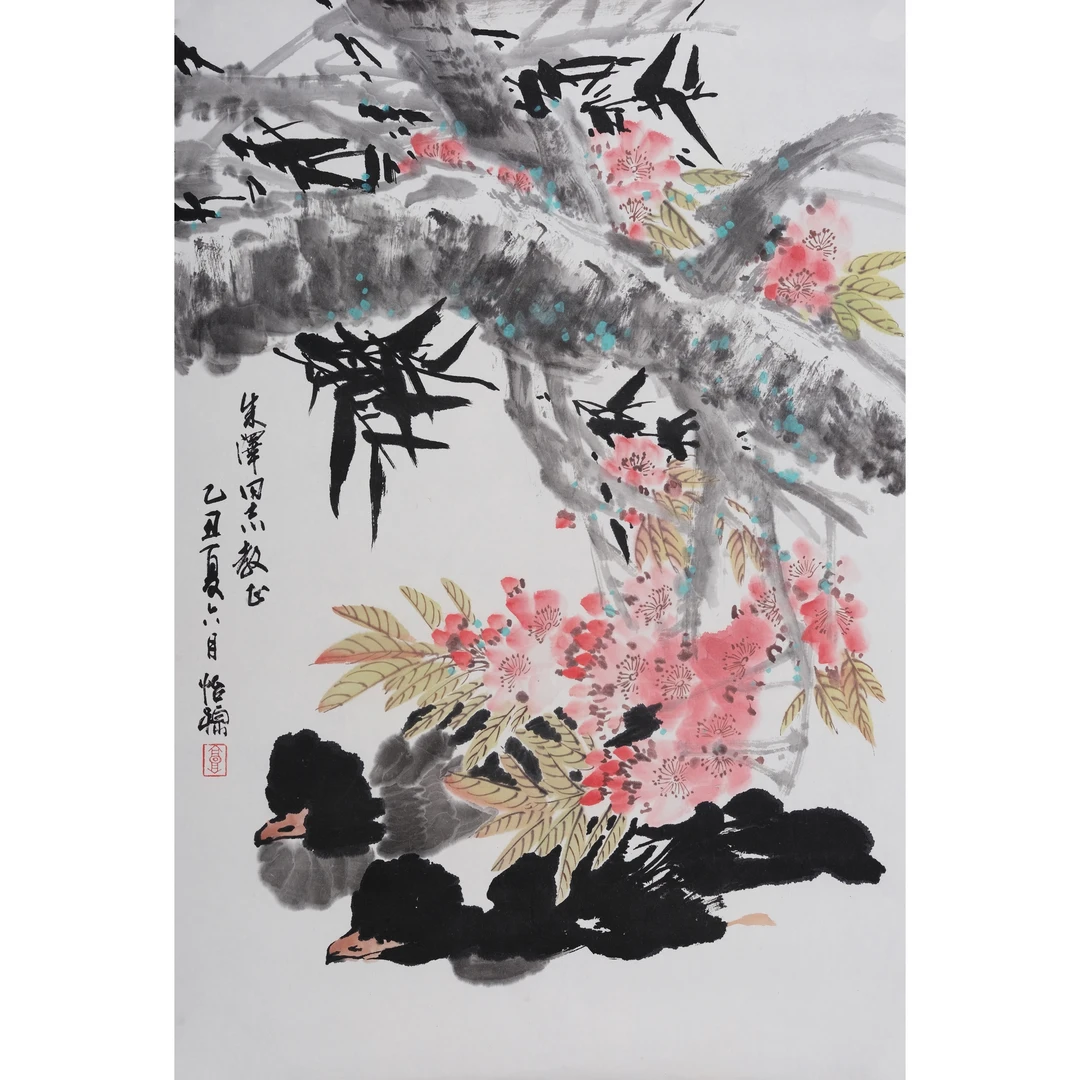 朱澤同志教正
乙丑夏六月怡